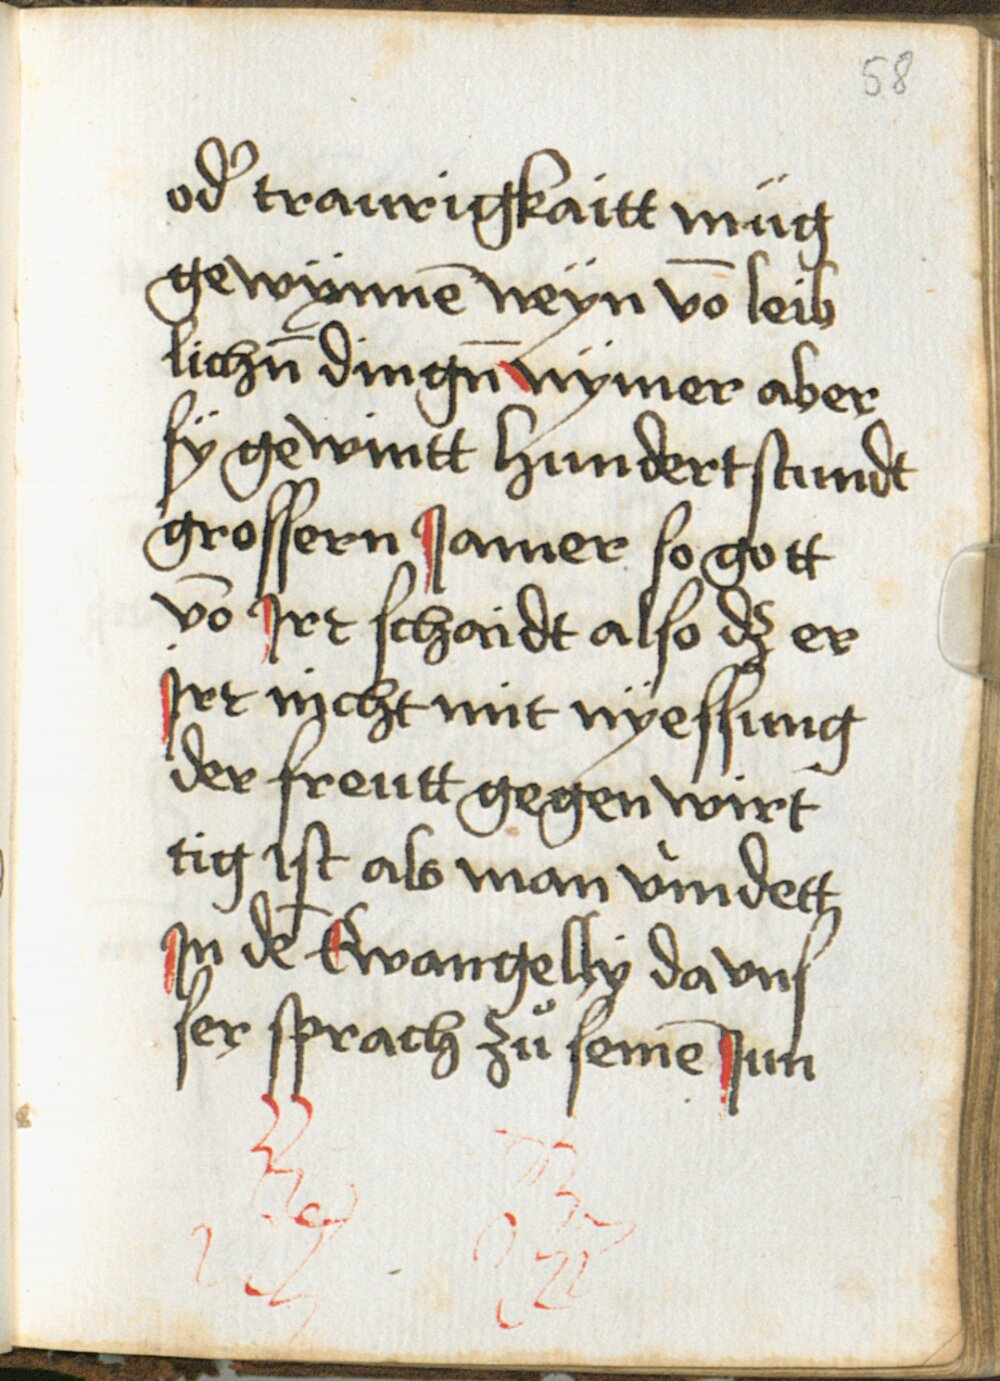 58
od᷑ traurigkaitt müg
gewÿnnē weÿn vō leib
lichn̄ dingn̄ nÿmer aber
sÿ gewintt hundertstundt
grossern Jamer so gott
vō Jrr schaidt also dz er
Jrr nicht mit nÿessung
der freutt gegenwirt
tig ist als man vindett
Jn dē Ewangelly da vns
ser sprach zů seinē Jun